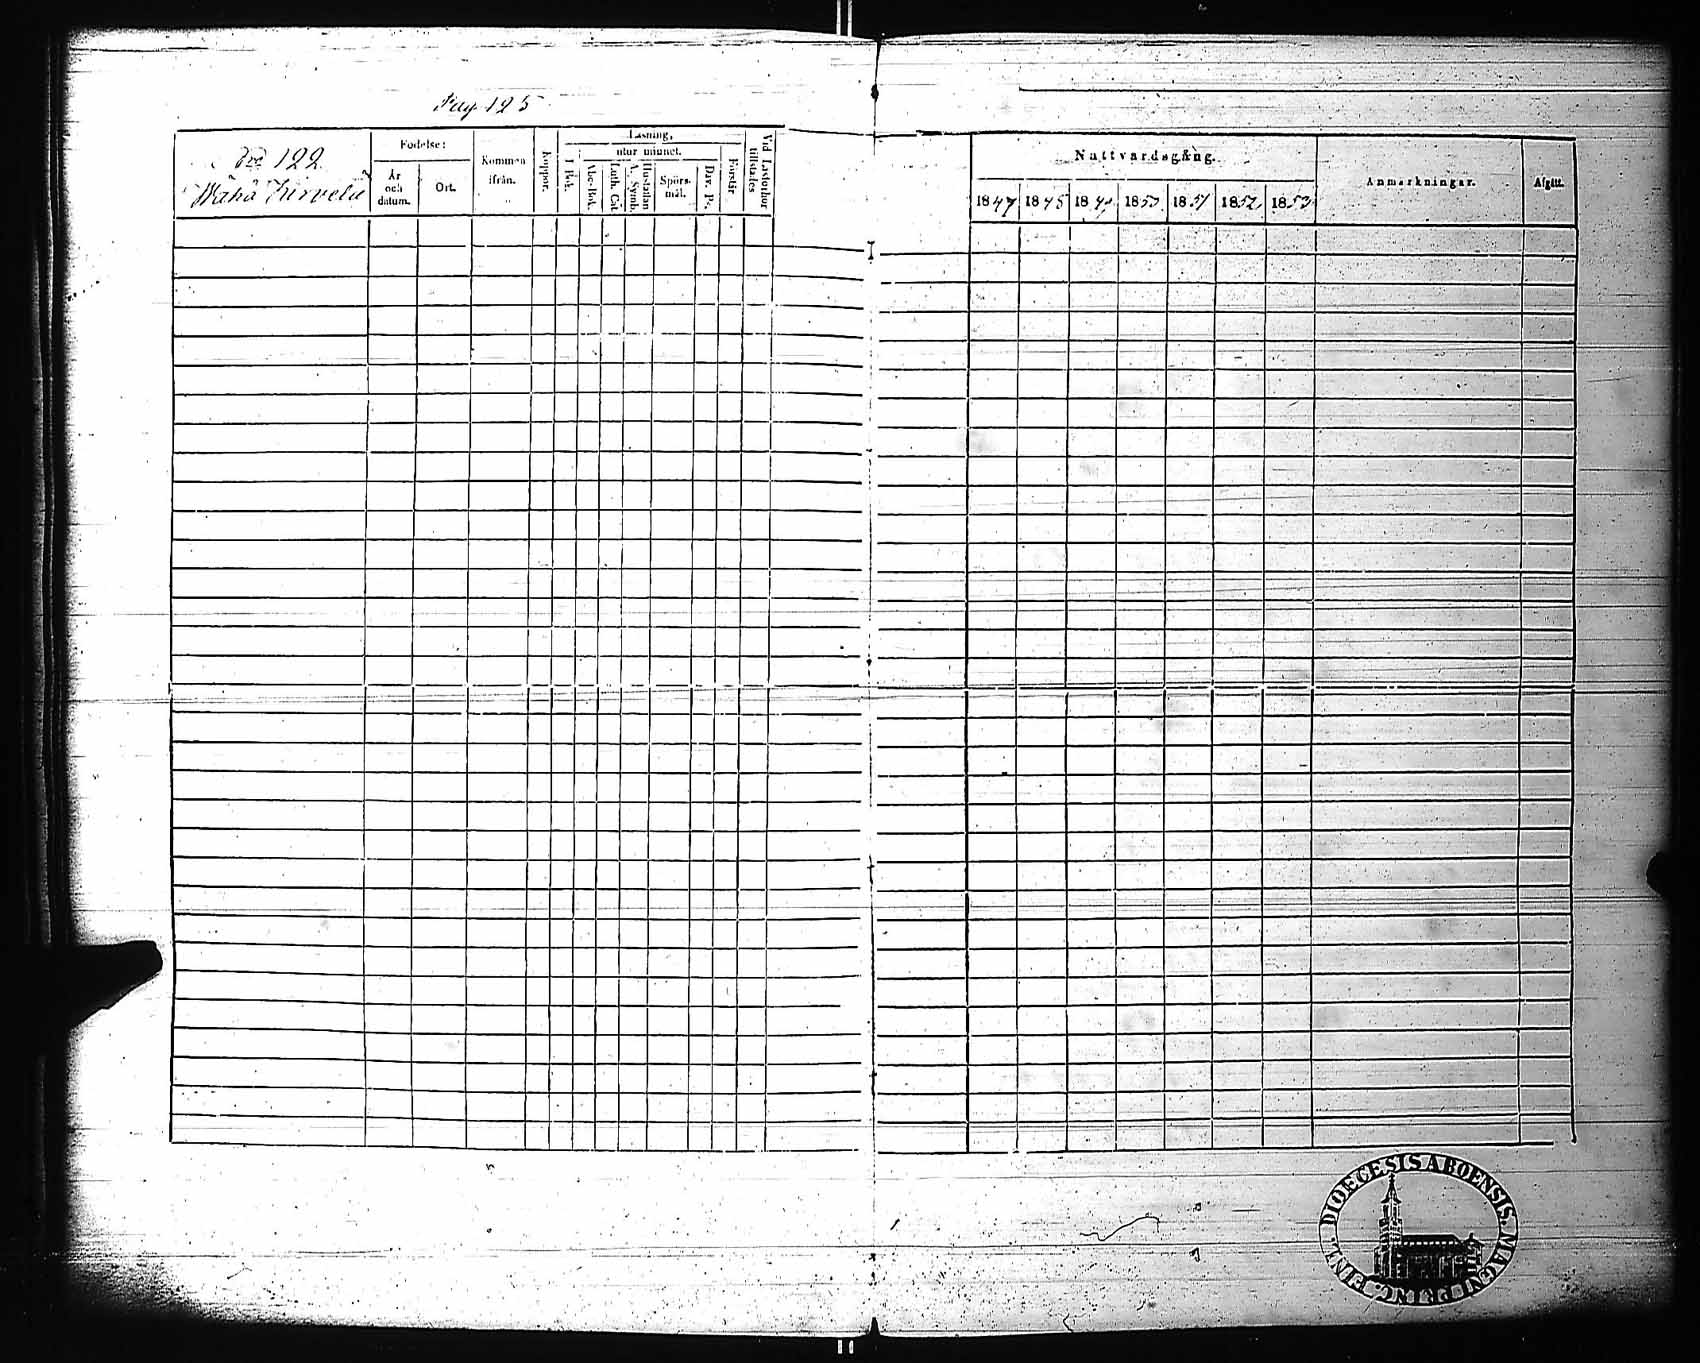 Pag 125
No 122
Wähä Kirvelä
Födelse:
År och datum.
Ort.
Kommen ifrån.
Koppor.
Läsning,
utur minnet.
I Bok.
Abc-Bok.
Luth. Cat.
Hustaflan A. Symb.
Spörsmål.
Dav. Ps.
Förstår
Vid Läsförhör tillstädes
Nattvardsgång.
1847 1848 1849 1850 1851 1852 1853
Anmärkningar.
Afgått.
DIOECESIS ABOENSIS. MAGNI PRINC. FINL.